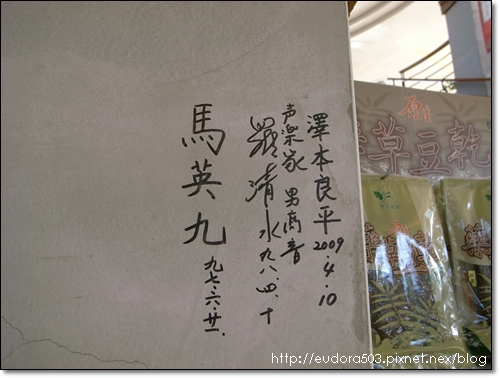 澤本良平
2009.4.10
声楽家 男高音
羅清水 九八.四.十
馬英九
九七.六.廿一.
原生
藥草豆乾
http://eudora503.pixnet.nex/blog